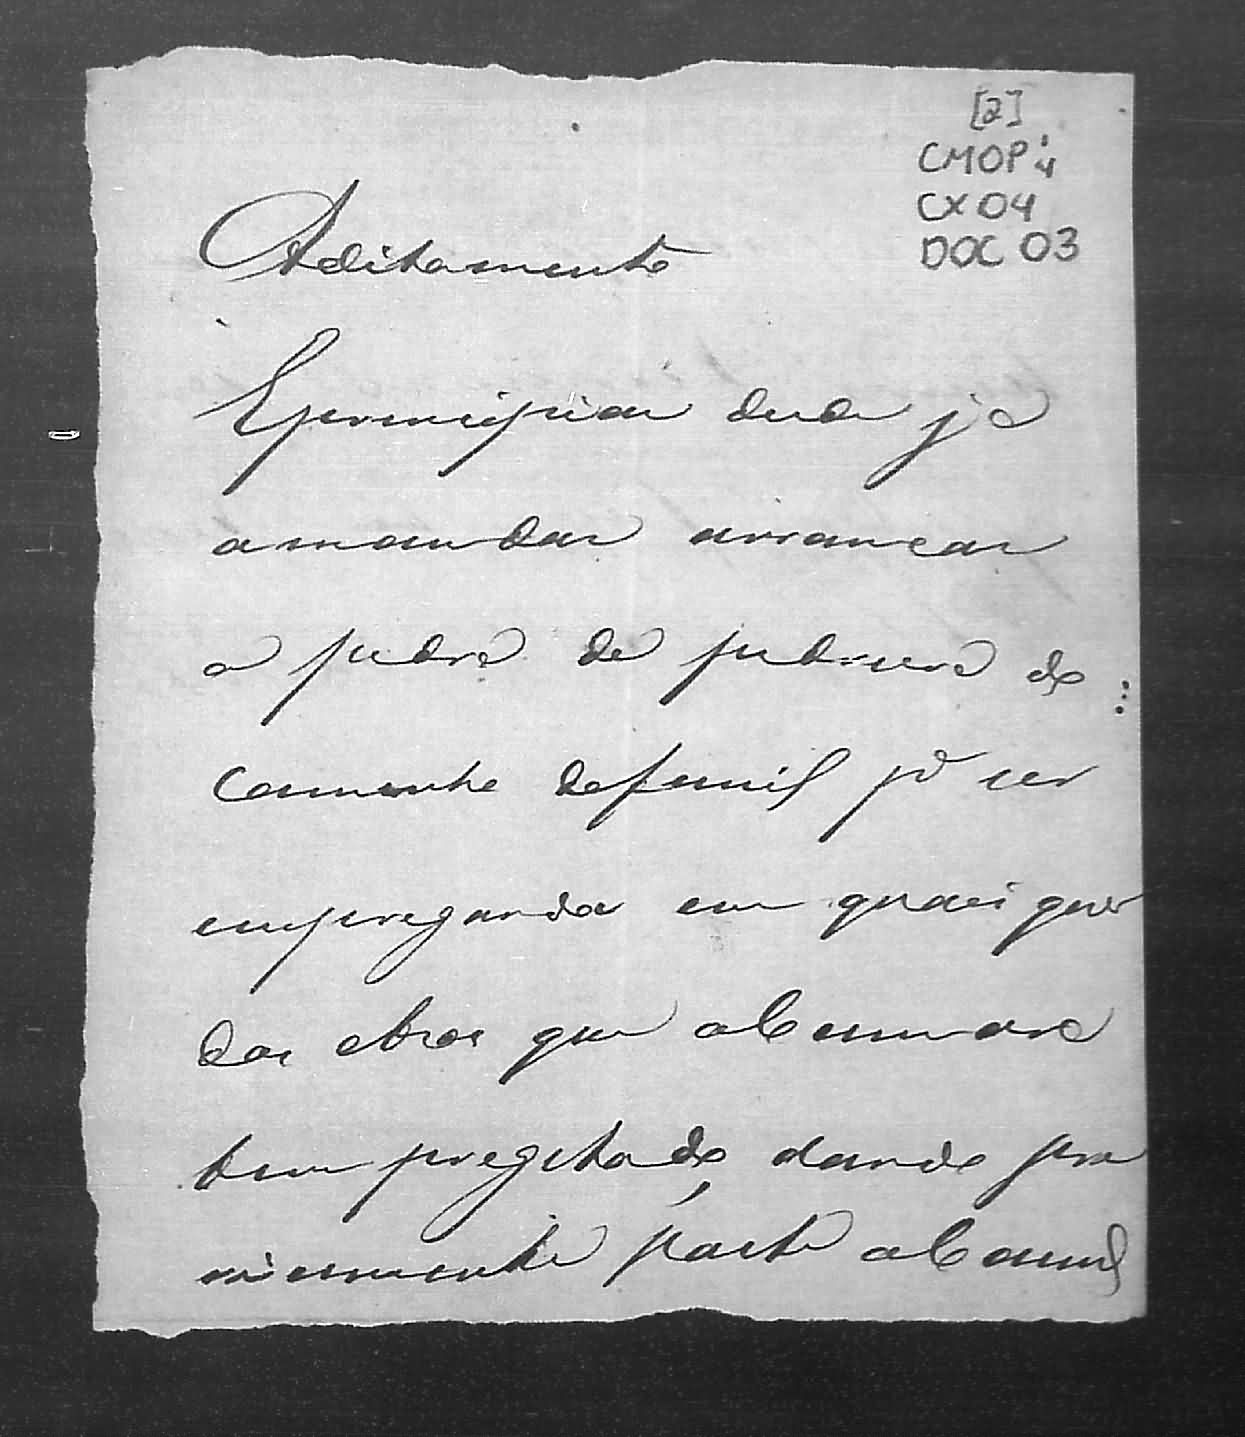 [2]
CMOP 4
CX 04
DOC 03
Aditamento
E principiar desde ja
a mandar arrancar
a pedra da pedreira do
Caminho do funil pª ser
empregada em quais quer
das obras que a Camara
tem progetado, dando pre
viamente parte a Camª